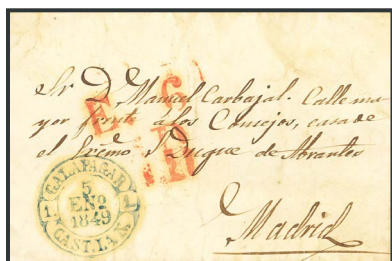 Sr D. Manuel Carbajal. Calle ma
yor frente a los Consejos, casa de
el Sr Duque de Abrantes
Madrid
GALAPAGAR
5
ENO
1849
CAST. LA N.
1